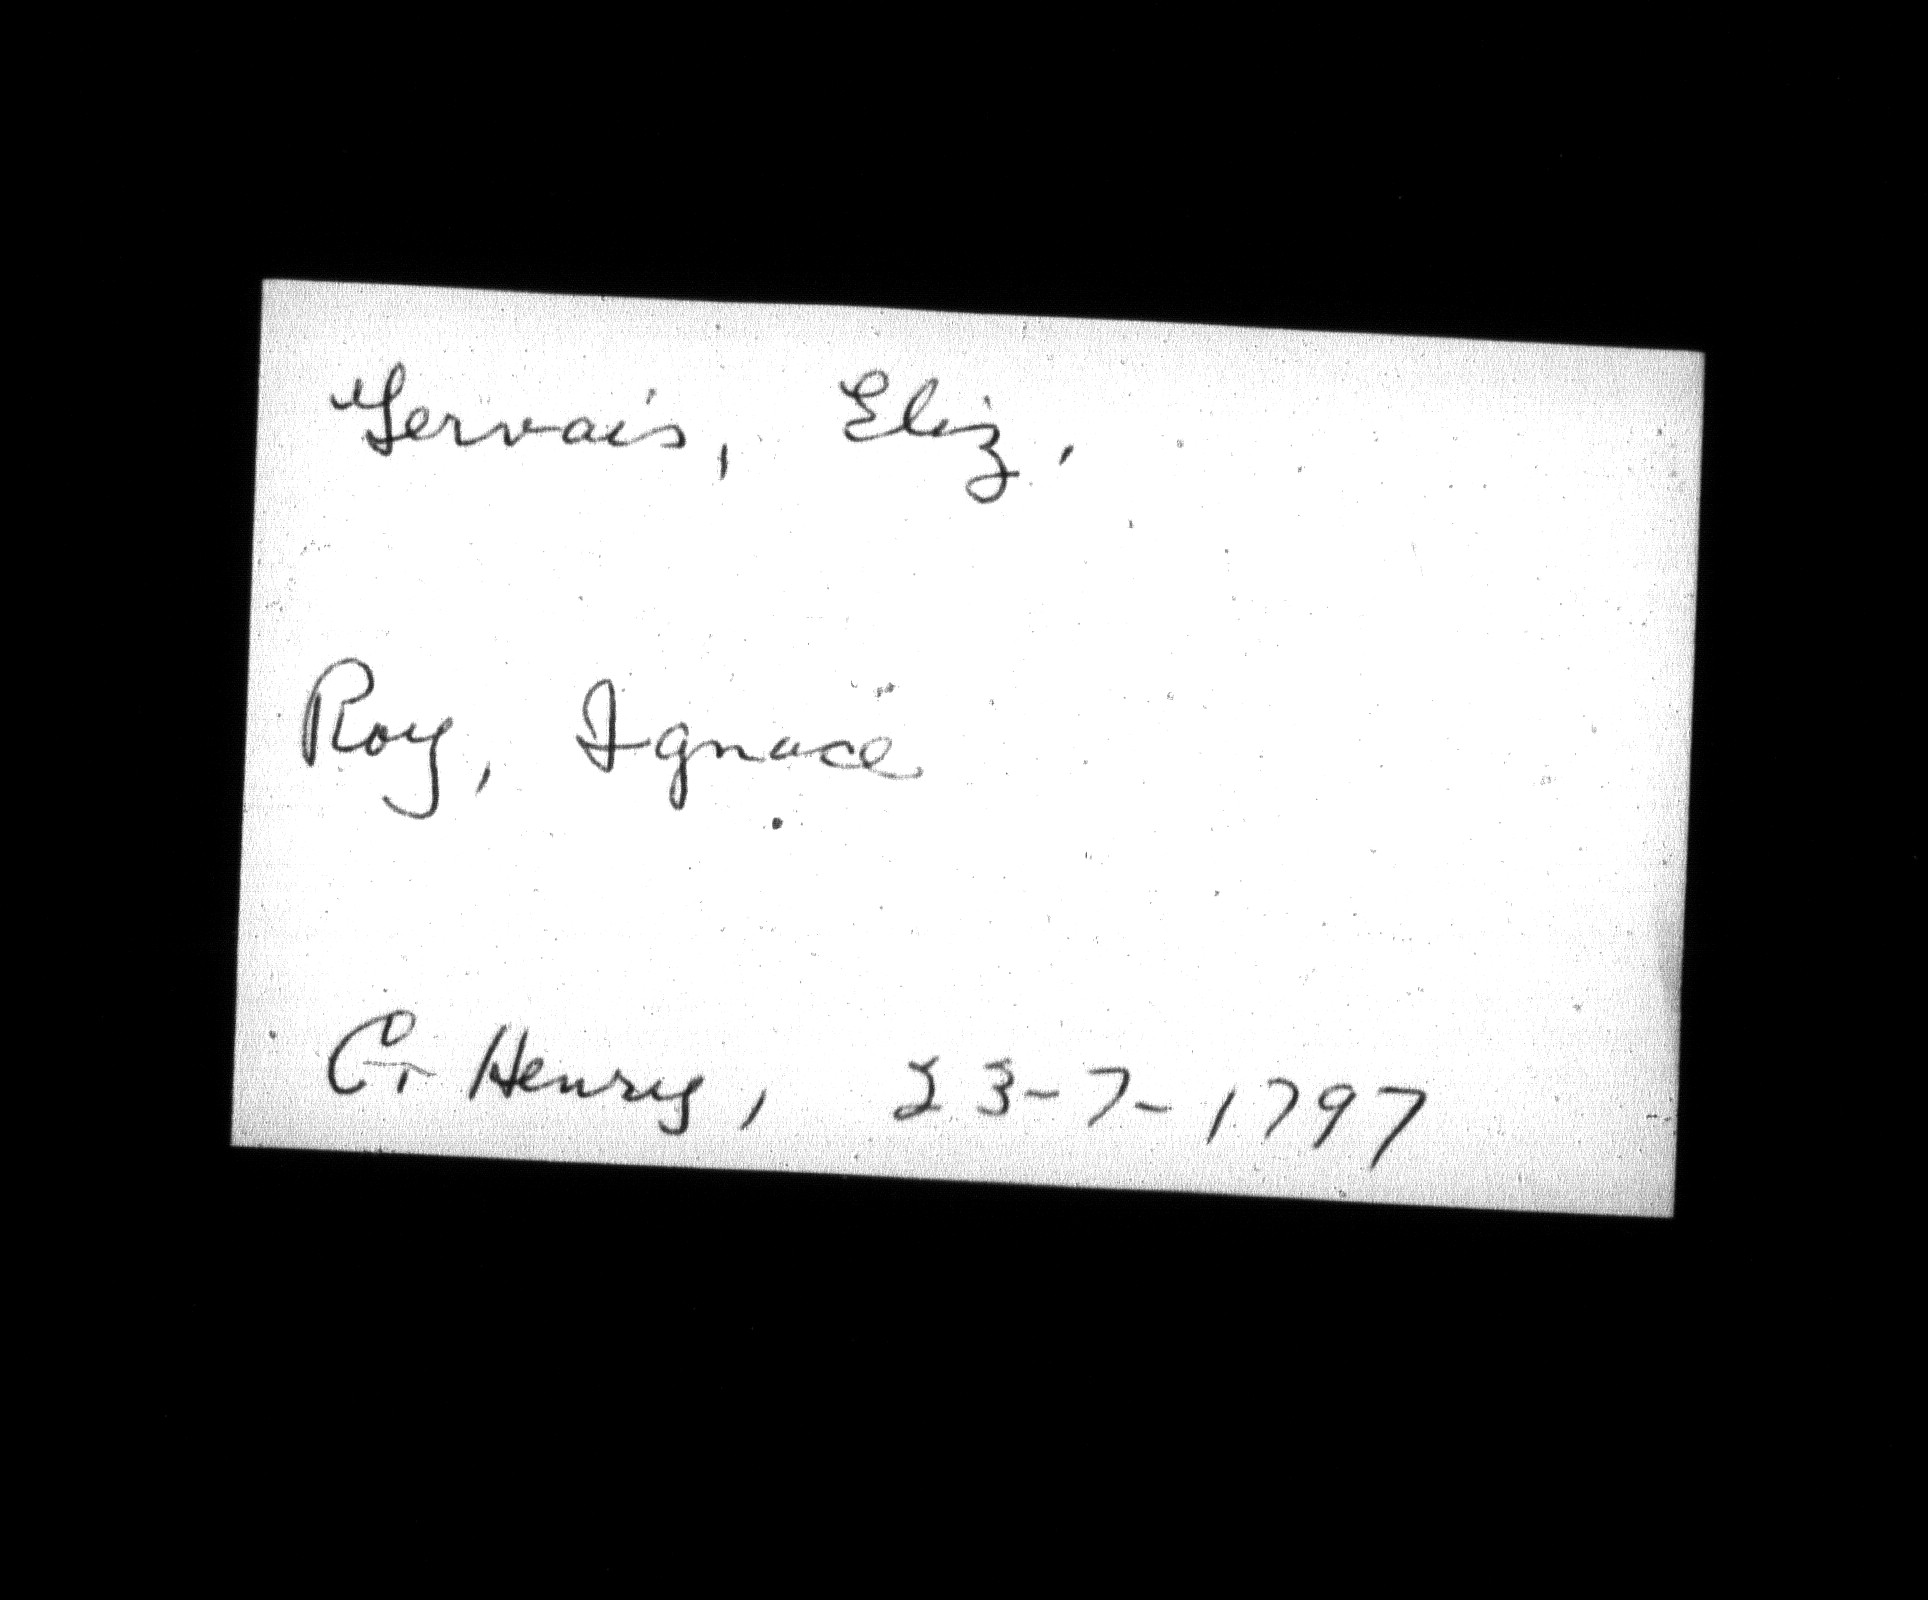 Gervais, Eliz.
Roy, Ignace
Ct Henry, 23-7-1797